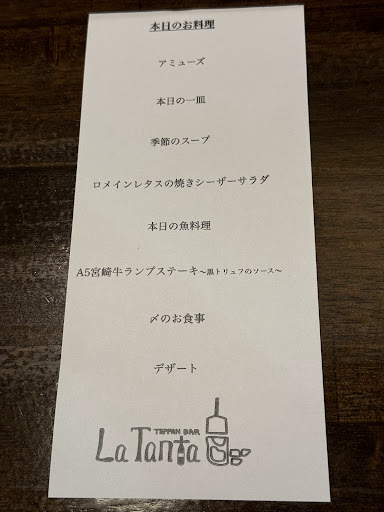 本日のお料理
アミューズ
本日の一皿
季節のスープ
ロメインレタスの焼きシーザーサラダ
本日の魚料理
A5宮崎牛ランプステーキ~黒トリュフのソース~
〆のお食事
デザート
TEPPAN BAR
La Tanta